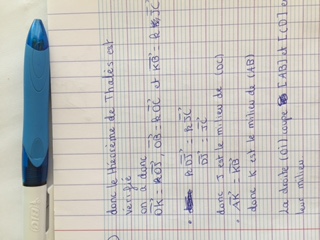 donc le théorème de Thalès est
vérifié
on a donc
OK = k OJ, OB = k OC et KB = k JC
k DJ = k JC
DJ = JC
donc J est le milieu de (DC)
• AK = KB
donc K est le milieu de (AB)
La droite (OI) coupe [AB] et [CD] en
leur milieu